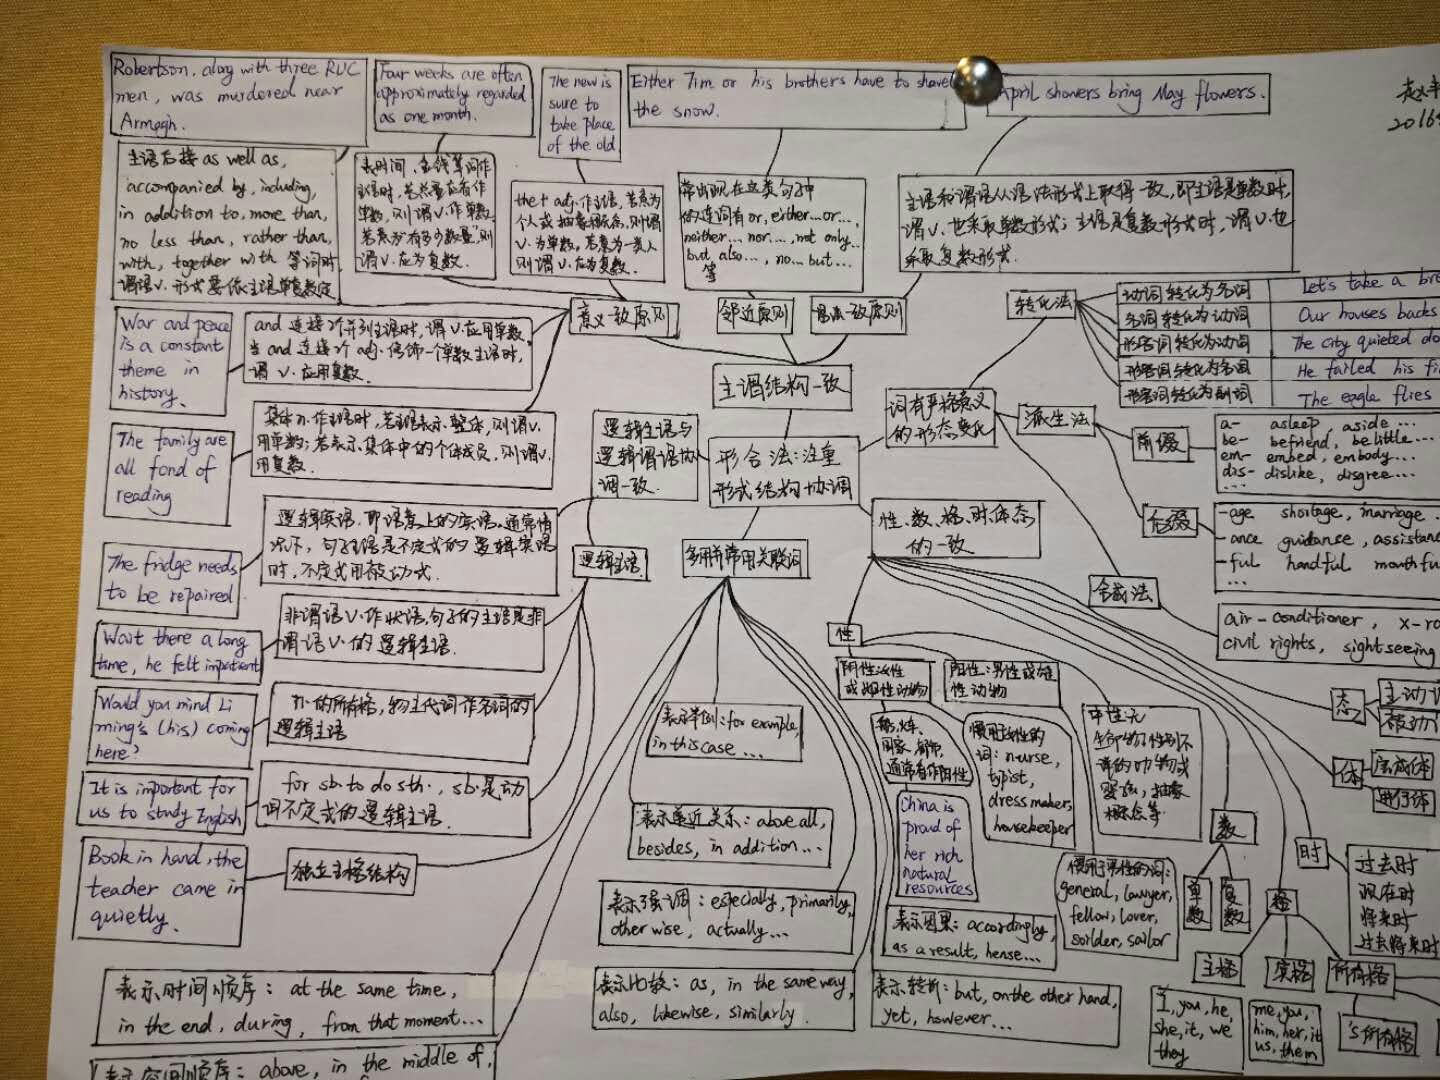 Robertson, along with three RUC
men, was murdered near
Armagh.
Four weeks are often
approximately regarded
as one month.
The new is
sure to
take place
of the old
Either Tim or his brothers have to shovel
the snow.
April showers bring May flowers.
2016
主语后接 as well as,
accompanied by, including,
in addition to, more than,
no less than, rather than,
with, together with 等词时,
谓语V.形式要依主语单复数定
表时间、金钱等词作
主语时,若总量应看作
单数,则谓V.作单数
若意为"有多少数量",则
谓V.应为复数.
the+adj.作主语,若意为
个人或抽象概念,则谓
V.为单数,若意为一类人
则谓V.应为复数.
常出现在这类句子中
的连词有or, either...or...,
neither...nor..., not only...
but also..., no...but...
等
主语和谓语从语法形式上取得一致,即主语是单数时,
谓V.也采取单数形式;主语是复数形式时,谓V.也
采取复数形式.
意义一致原则
邻近原则
语法一致原则
转化法
动词转化为名词
Let's take a bre
名词转化为动词
Our houses backs
形容词转化为动词
The city quieted do
形容词转化为名词
He failed his fi
形容词转化为副词
The eagle flies
War and peace
is a constant
theme in
history.
and 连接2个并列主语时,谓V.应用单数
当and连接2个adj.修饰一个单数主语时,
谓V.应用复数.
主谓结构一致
The family are
all fond of
reading
集体n.作主语时,若主语表示整体,则谓V.
用单数;若表示集体中的个体成员,则谓V.
用复数.
逻辑主语与
逻辑谓语协
调一致.
形合法:注重
形式结构协调
词有严格意义
的形态变化
派生法
前缀
a- asleep, aside...
be- befriend, belittle...
em- embed, embody...
dis- dislike, disgree...
...
后缀
-age shortage, marriage
-ance guidance, assistan
-ful handful mouthfu
...
合成法
air-conditioner, x-ra
civil rights, sightseeing
The fridge needs
to be repaired.
逻辑宾语,即语意上的宾语。通常情
况下,句子主语是不定式的逻辑宾语
时,不定式用被动式.
逻辑主语.
多用并常用关联词
性、数、格、时、体、态
的一致
Wait there a long
time, he felt impatient
非谓语V.作状语,句子的主语是非
谓语V.的逻辑主语.
Would you mind Li
ming's (his) coming
here?
n.的所有格,物主代词作名词的
逻辑主语
It is important for
us to study English
for sb. to do sth., sb.是动
词不定式的逻辑主语.
Book in hand, the
teacher came in
quietly.
独立主格结构
表示举例:for example,
in this case...
表示递近关系:above all,
besides, in addition...
表示强调:especially, primarily,
otherwise, actually...
表示比较:as, in the same way,
also, likewise, similarly.
表示时间顺序:at the same time,
in the end, during, from that moment...
表示空间顺序:above, in the middle of,
表示因果:accordingly,
as a result, hense...
表示转折:but, on the other hand,
yet, however...
性
阴性:女性
或雌性动物
阳性:男性或雄
性动物
国家
通常看作阴性
China is
proud of
her rich
natural
resources
惯用于女性的
词:nurse,
typist,
dressmaker,
housekeeper
中性:无
生命物、性别不
详的动物或
婴孩,抽象
概念等.
惯用于男性的词:
general, lawyer,
fellow, lover,
soilder, sailor
数
单数
复数
格
主格
宾格
所有格
I, you, he,
she, it, we
they
me, you,
him, her, it
us, them
's所有格
时
过去时
现在时
将来时
过去将来时
体
完成体
进行体
态
主动
被动